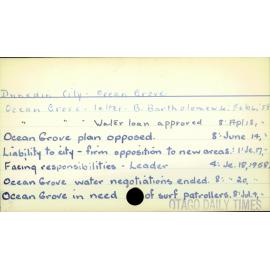 Dunedin City - Ocean Grove
Ocean Grove - letter - B. Bartholomew 4: Feb 6, 58
" " Water loan approved 8: Apl 18, "
Ocean Grove plan opposed. 8: June 14, "
Liability to city - firm opposition to new areas. 1: Je. 17, "
Facing responsibilities - Leader 4: Je. 18, 1958
Ocean Grove water negotiations ended. 8: " 20, "
Ocean Grove in need of surf patrollers. 8: Jul 9, "
OTAGO DAILY TIMES